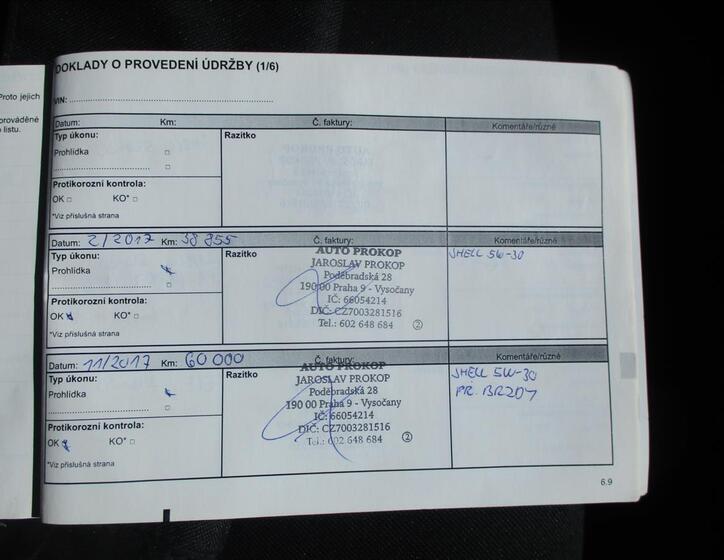 Proto jejich
prováděné
listu.
DOKLADY O PROVEDENÍ ÚDRŽBY (1/6)
VIN:
Datum: Km: Č. faktury: Komentáře/různé
Typ úkonu: Razítko
Prohlídka □
□
Protikorozní kontrola:
OK □ KO* □
*Viz příslušná strana
Datum: 2/2017 Km: 38 955 Č. faktury: Komentáře/různé
Typ úkonu: Razítko
Prohlídka
□
Protikorozní kontrola:
OK KO* □
*Viz příslušná strana
AUTO PROKOP
JAROSLAV PROKOP
Poděbradská 28
190 00 Praha 9 - Vysočany
IČ: 66054214
DIČ: CZ7003281516
Tel.: 602 648 684 ②
SHELL 5W-30
Datum: 11/2017 Km: 60 000 Č. faktury: Komentáře/různé
Typ úkonu: Razítko
Prohlídka
□
Protikorozní kontrola:
OK KO* □
*Viz příslušná strana
AUTO PROKOP
JAROSLAV PROKOP
Poděbradská 28
190 00 Praha 9 - Vysočany
IČ: 66054214
DIČ: CZ7003281516
Tel.: 602 648 684 ②
SHELL 5W-30
6.9